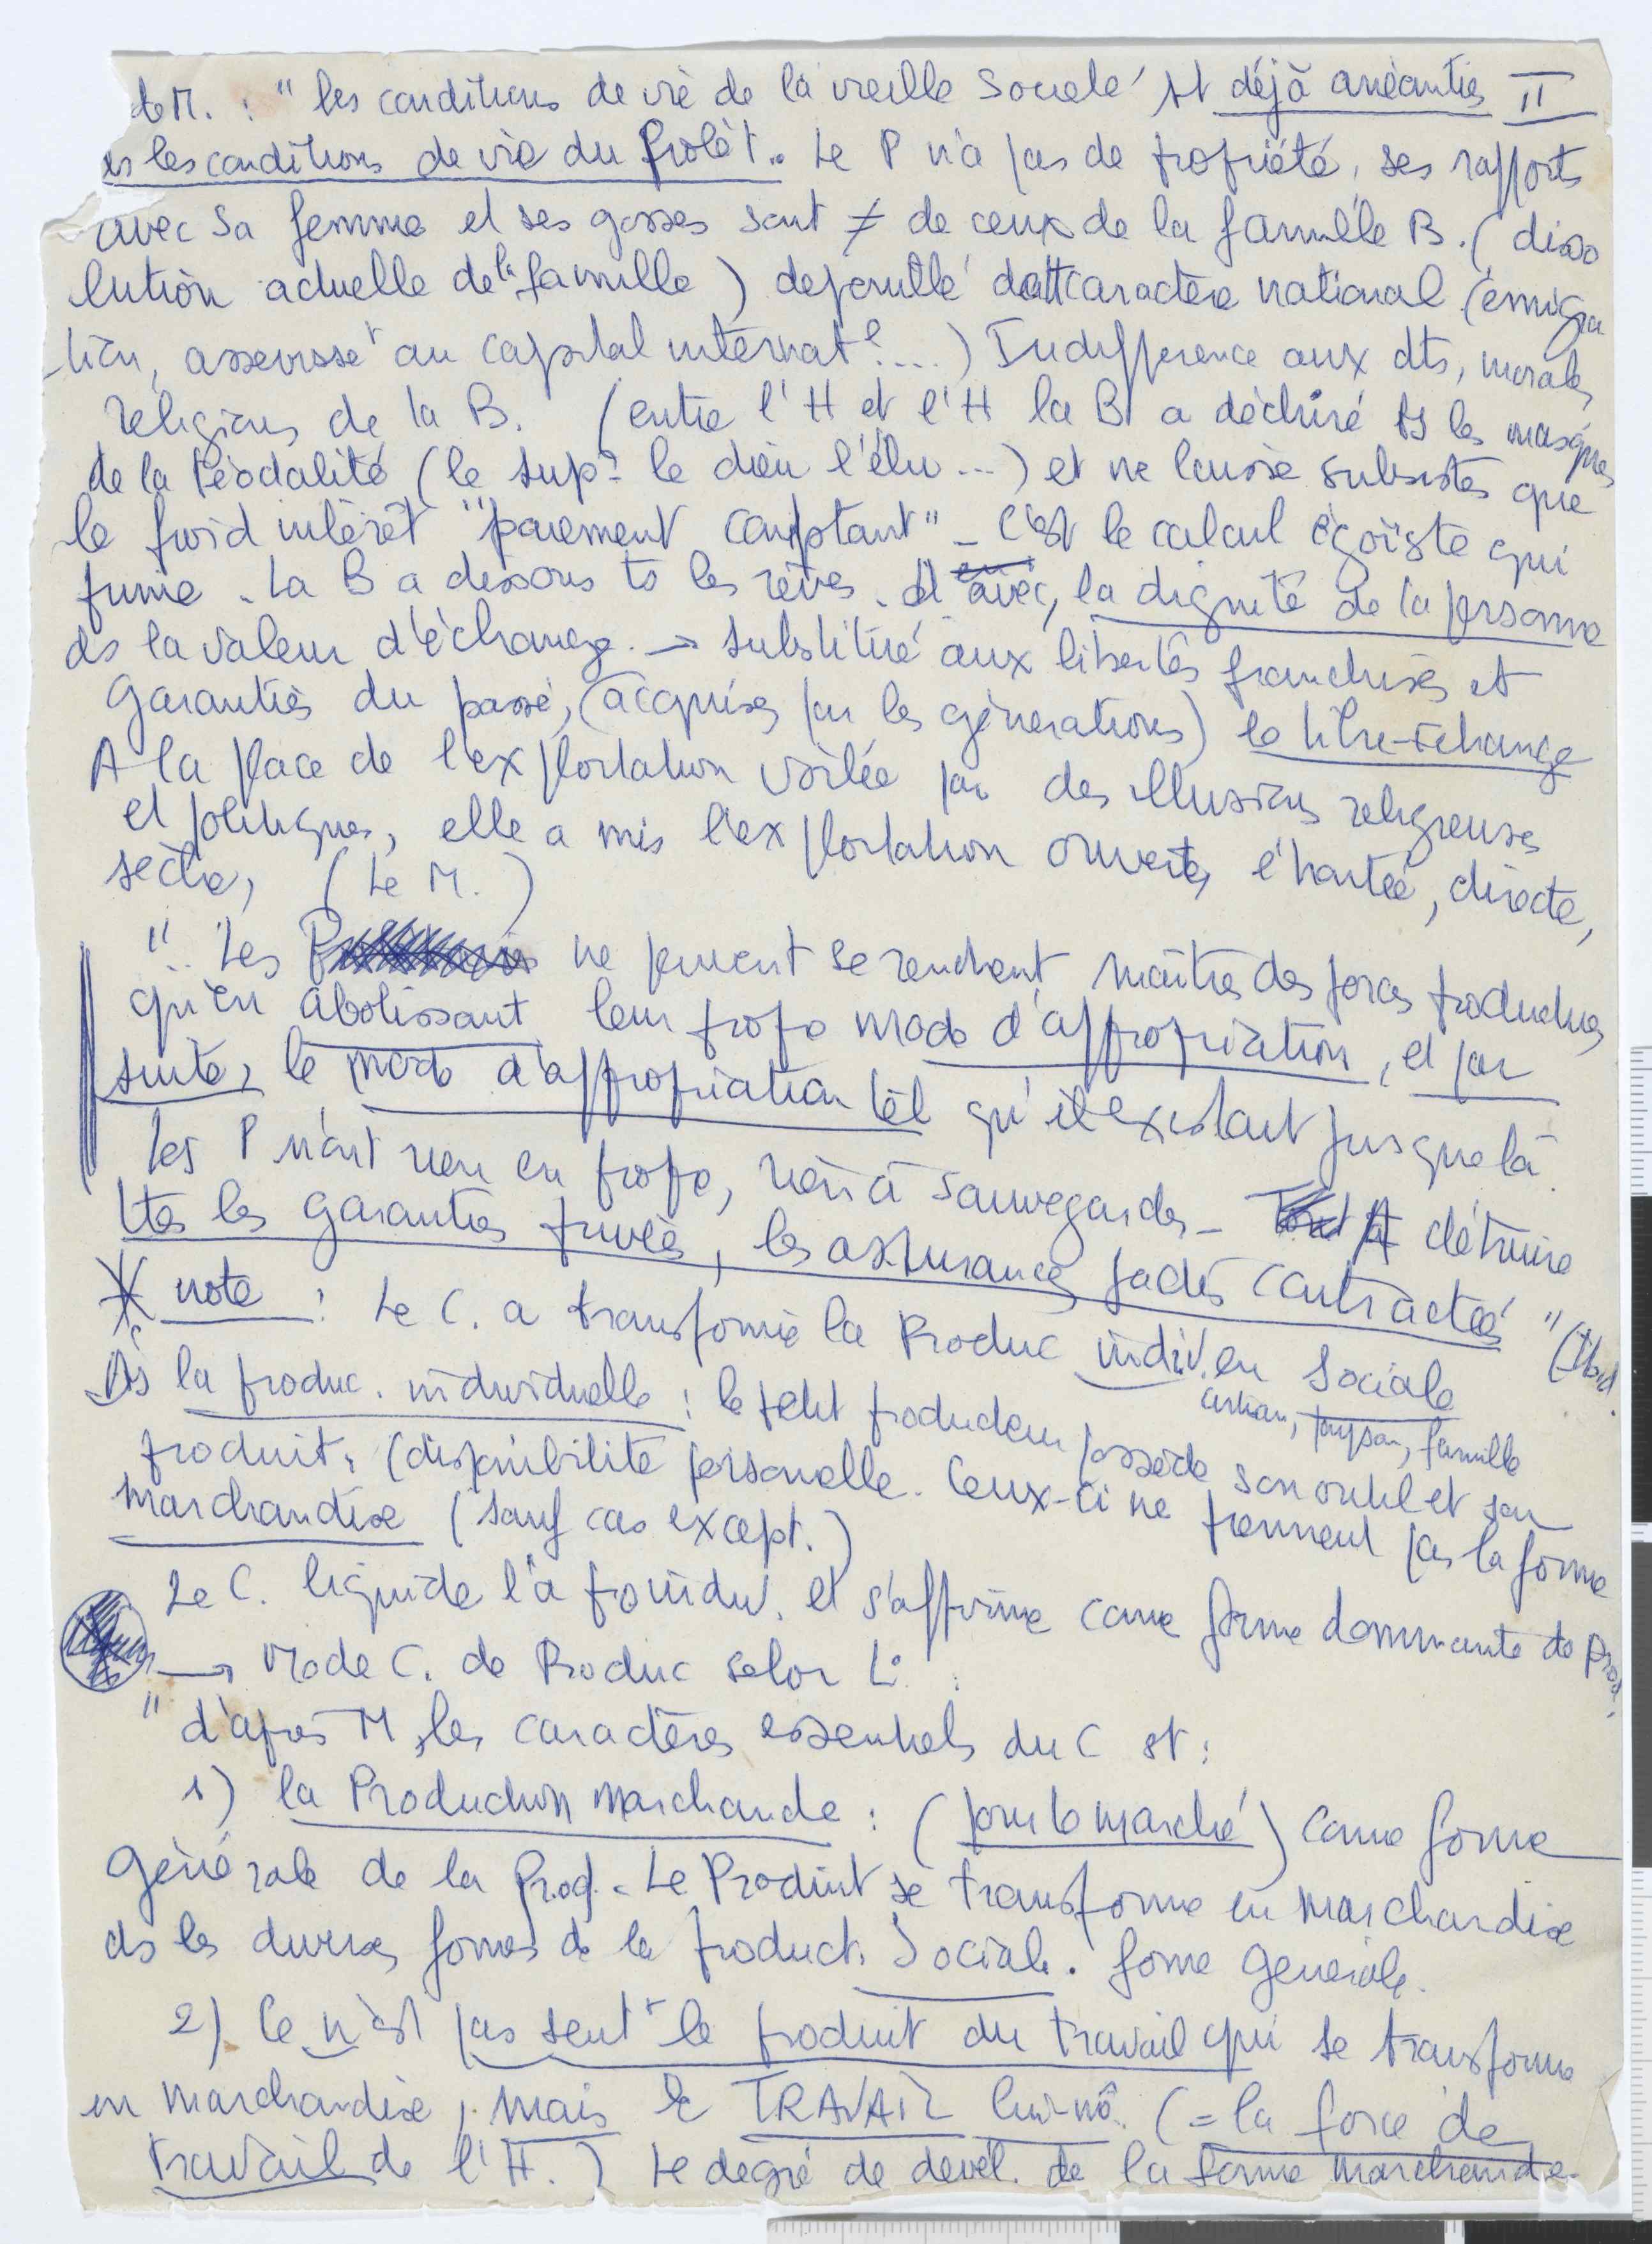 de M. : " les conditions de vie de la vieille Société st déjà anéanties II
ds les conditions de vie du Prolét. Le P n'a pas de propriété, ses rapports
avec sa femme et ses gosses sont ≠ de ceux de la famille B. (disso
lution actuelle de la famille) dépouillé de tt caractère national (émigra
tion, asservissé au capital internat....) Indifférence aux dts, morales,
religions de la B. (entre l'H et l'H la B a déchiré ts les masques
de la Féodalité (le sup. le dieu l'élu ...) et ne laisse subsister que
le froid intérêt "paiement comptant" - c'est le calcul égoïste qui
prime. La B a dissous ts les rêves. et avec, la dignité de la personne
ds la valeur d'échange. → substitué aux libertés franchises et
garanties du passé, (acquises par les générations) le libre-échange
A la place de l'exploitation voilée par des illusions religieuses
et politiques, elle a mis l'exploitation ouverte, éhontée, directe,
sèche, (Le M.)
" Les ne peuvent se rendrent maîtres des forces productives
qu'en abolissant leur propre mode d'appropriation, et par
suite, le mode d'appropriation tel qu'il existait jusque là.
les P n'ont rien en propre, rien à sauvegarder - A détruire
ttes les garanties privées, les assurances jadis contractées " (Ibid.
* note : Le C. a transformé la Produc indiv. en Sociale
artisan, paysan, famille
Ds la produc. individuelle : le petit producteur possède son outil et son
produit, (disponibilité personnelle. Ceux-ci ne prennent pas la forme
marchandise (sauf cas except.)
Le C. liquide l'a pro indiv. et s'affirme come forme dominante de prod.
→ Mode C. de Produc selon L. :
" d'après M, les caractères essentiels du C st :
1) la Production marchande : (pour le marché) come forme
générale de la Prod. - Le Produit se transforme en marchandise
ds les diverses formes de la product. Sociale. forme générale.
2) Ce n'est pas seult le produit du travail qui se transforme
en marchandise, mais le TRAVAIL lui-mê. (= la force de
travail de l'H.) Le degré de dével. de la forme marchande